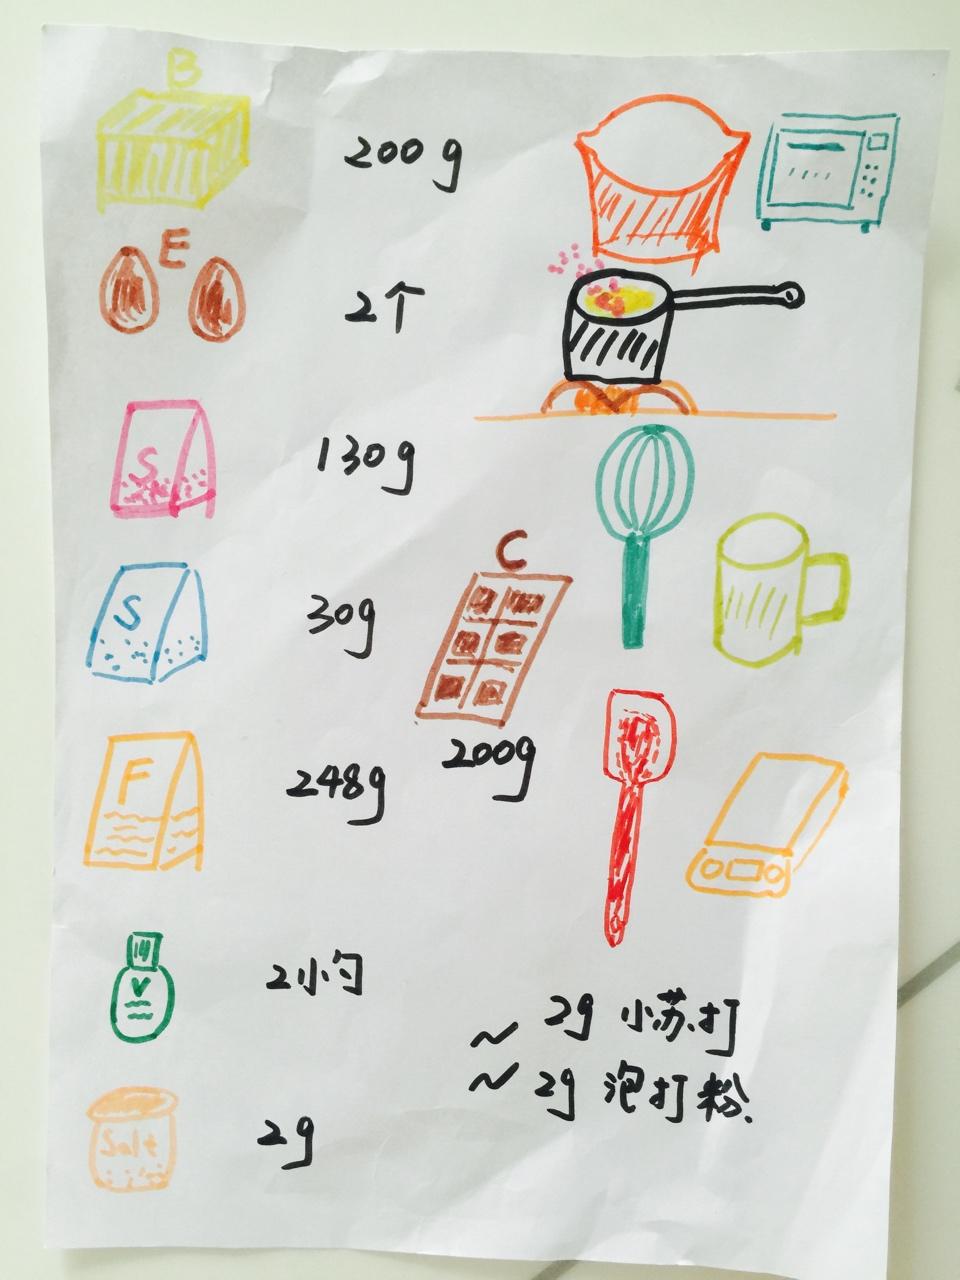 B
200g
E
2个
S
130g
S
30g
C
200g
F
248g
V
2小勺
~ 2g 小苏打
~ 2g 泡打粉.
Salt
2g